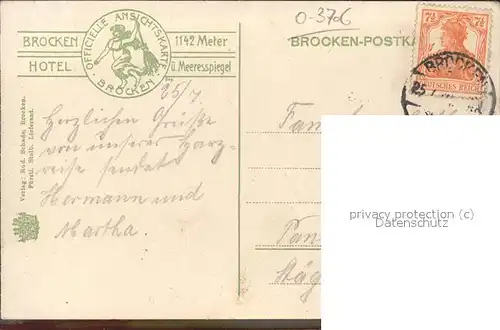 O-3706
BROCKEN 1142 Meter
HOTEL ü. Meeresspiegel
OFFICIELLE ANSICHTSKARTE
BROCKEN
BROCKEN-POSTKA
7½ 7½
DEUTSCHES REICH
BROCKEN
25/7
Herzlichen Grüße
von unserer Harz-
reise sendet
Hermann und
Martha.
Fam
Pan
Verlag: Rud. Schade, Brocken.
Fürstl. Stolb. Lieferant.
privacy protection (c)
Datenschutz